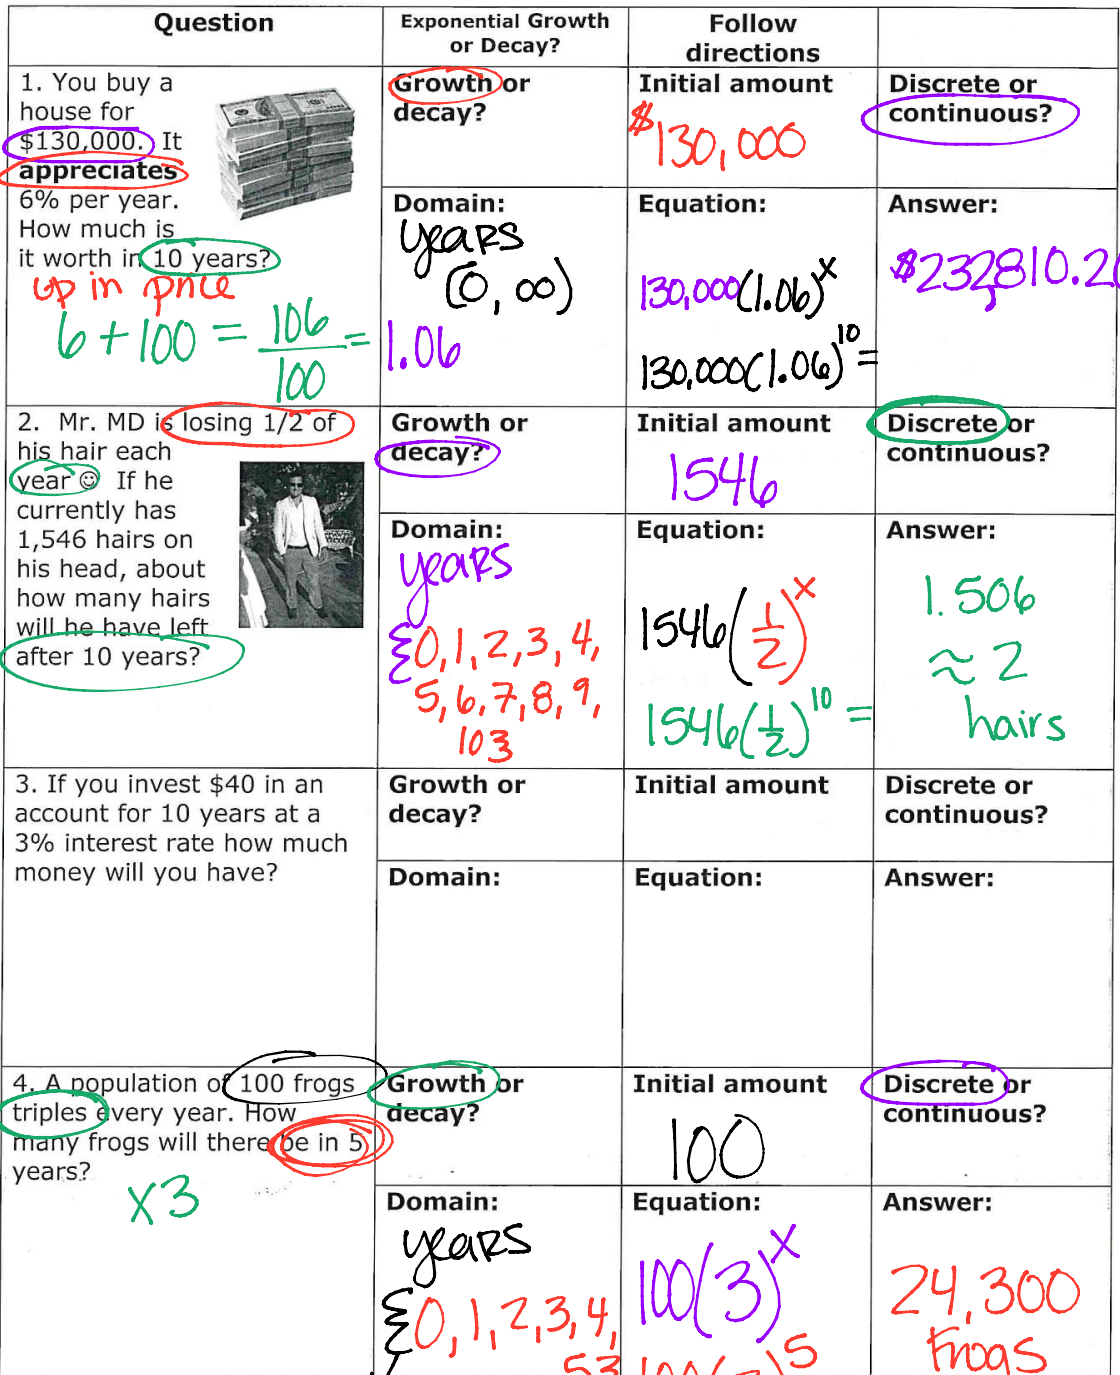 Question
Exponential Growth
or Decay?
Follow
directions
1. You buy a
house for
$130,000. It
appreciates
6% per year.
How much is
it worth in 10 years?
up in price
6 + 100 = 106/100 = 1.06
Growth or
decay?
Initial amount
$130,000
Discrete or
continuous?
Domain:
years
(0, ∞)
Equation:
130,000(1.06)^x
130,000(1.06)^10 =
Answer:
$232,810.2
2. Mr. MD is losing 1/2 of
his hair each
year ☺ If he
currently has
1,546 hairs on
his head, about
how many hairs
will he have left
after 10 years?
Growth or
decay?
Initial amount
1546
Discrete or
continuous?
Domain:
years
{0, 1, 2, 3, 4,
5, 6, 7, 8, 9,
10}
Equation:
1546(1/2)^x
1546(1/2)^10 =
Answer:
1.506
≈ 2
hairs
3. If you invest $40 in an
account for 10 years at a
3% interest rate how much
money will you have?
Growth or
decay?
Initial amount
Discrete or
continuous?
Domain:
Equation:
Answer:
4. A population of 100 frogs
triples every year. How
many frogs will there be in 5
years?
x3
Growth or
decay?
Initial amount
100
Discrete or
continuous?
Domain:
years
{0, 1, 2, 3, 4,
5}
Equation:
100(3)^x
Answer:
24,300
frogs